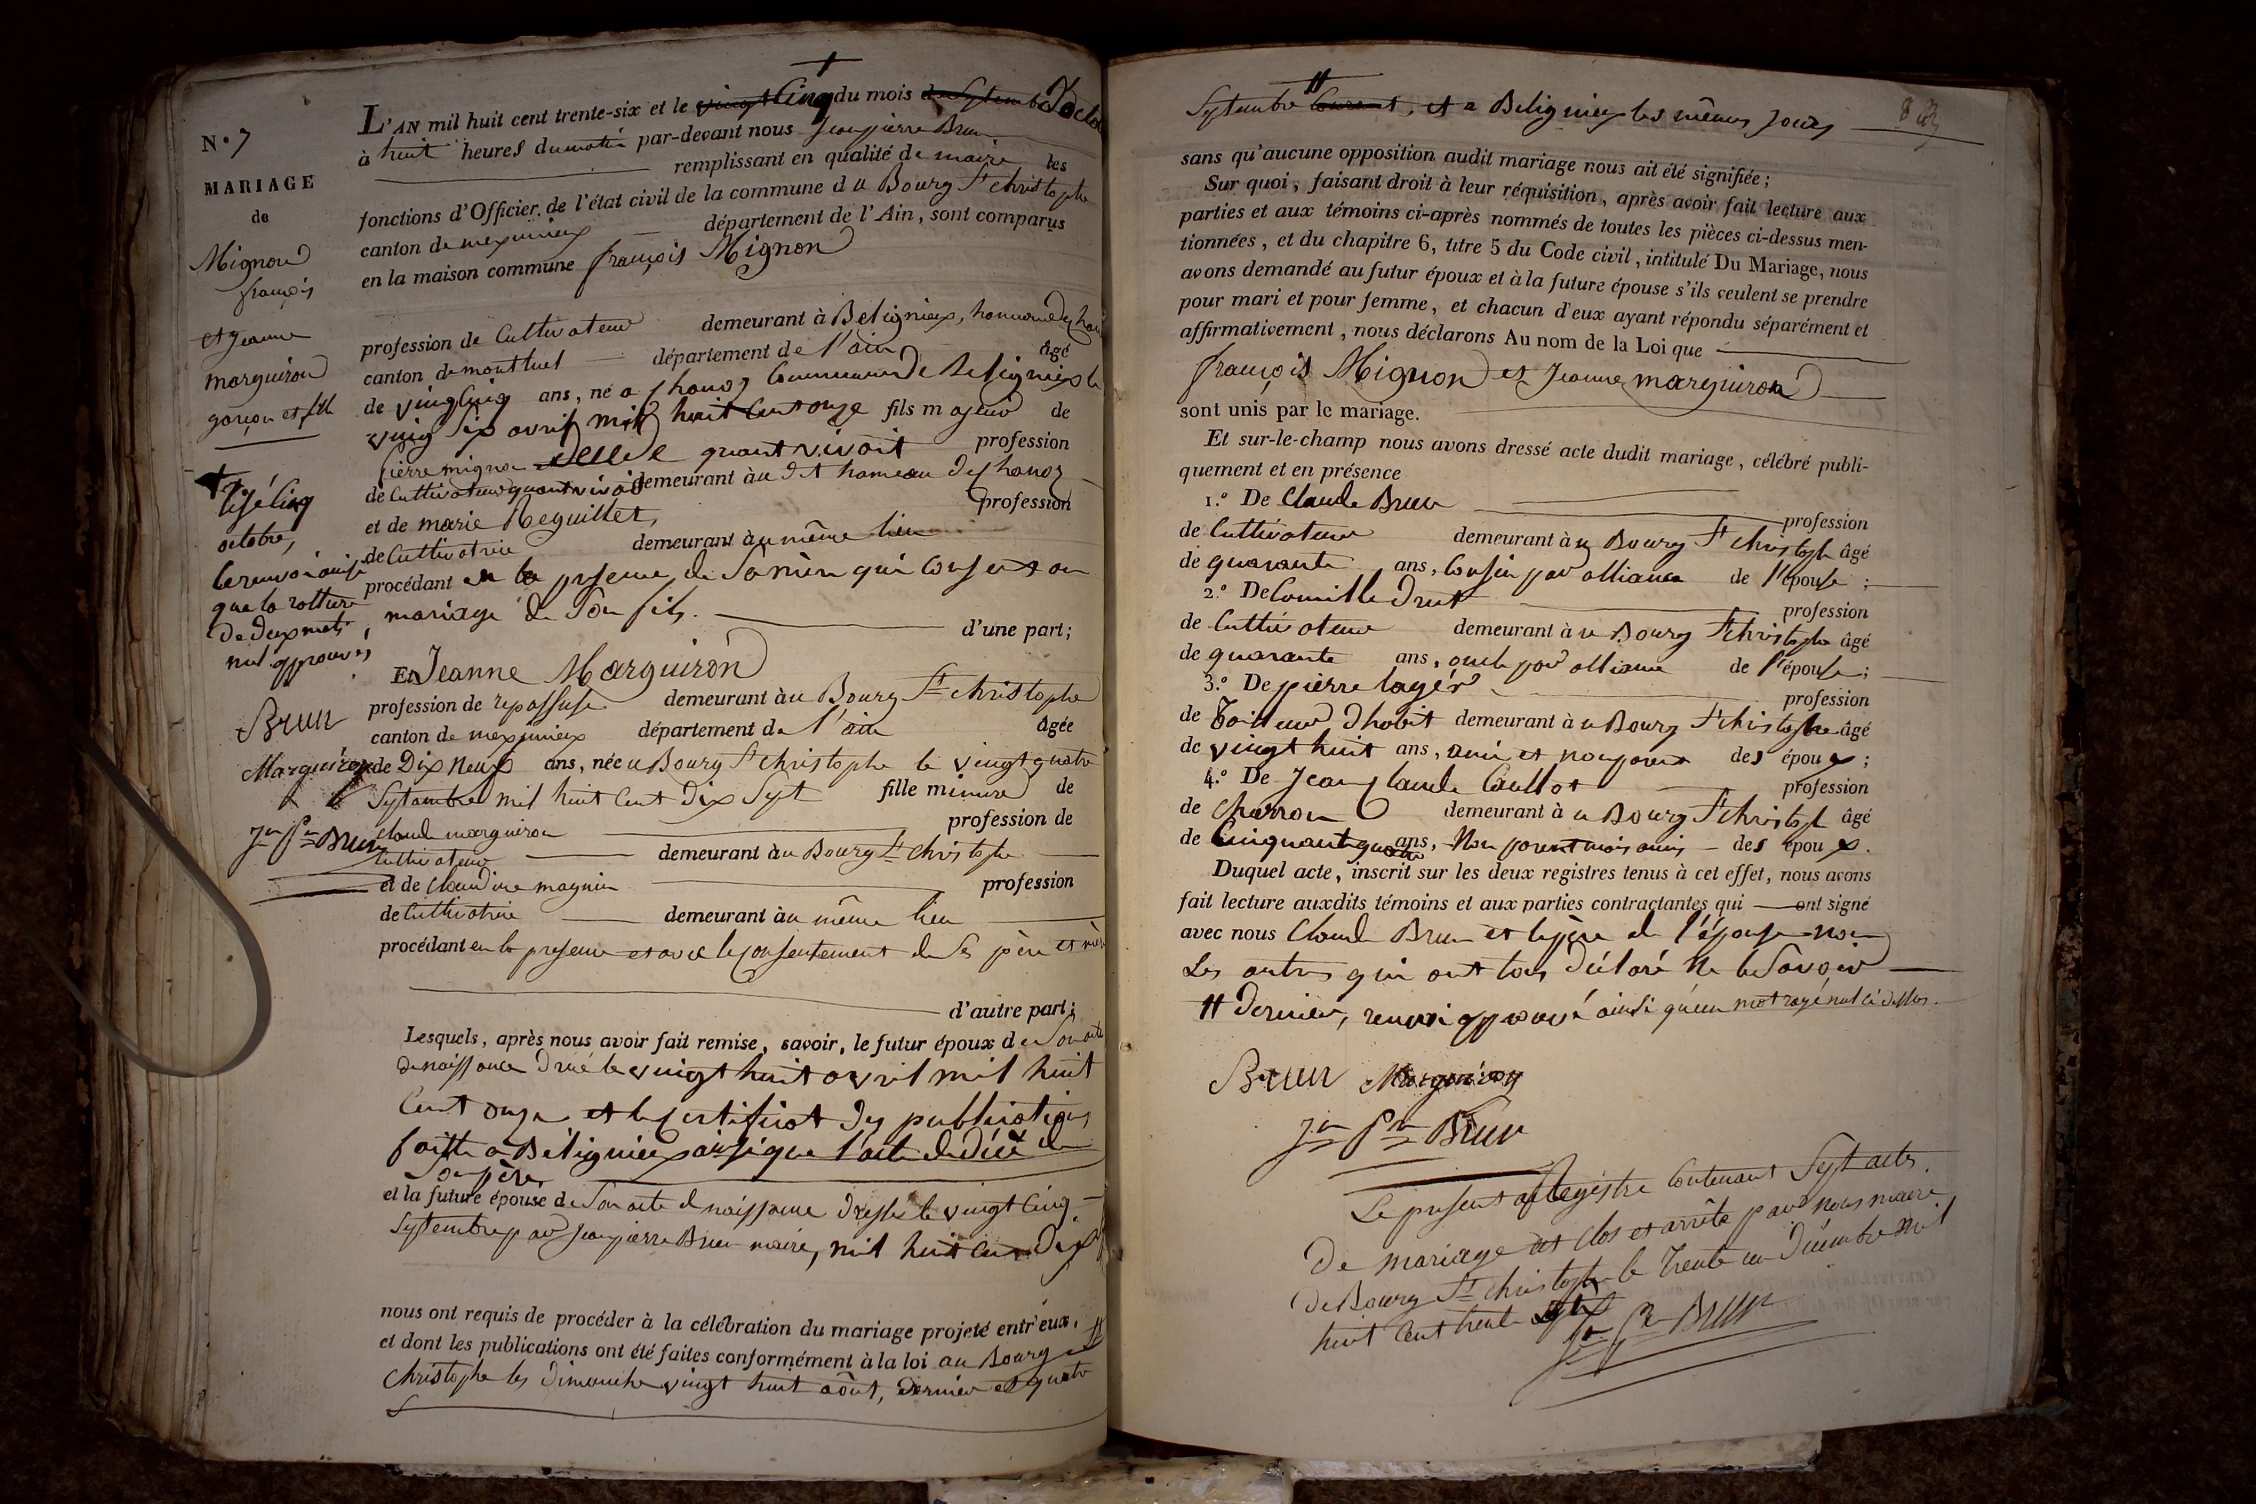 N.° 7
MARIAGE
de
Mignon
françois
et jeanne
marguiron
garçon et fille
Lisé cinq
octobre,
le renvoi ainsi
que la rature
de deux mots
nul approuvés,
Brun
Marguiron
Jn Pre Brun
L'AN mil huit cent trente-six et le vingt Cinq du mois de Septembre D'octo
à huit heures du matin par-devant nous Jean pierre Brun
remplissant en qualité de maire les
fonctions d'Officier de l'état civil de la commune du Bourg St christophe
canton de meximieux département de l'Ain, sont comparus
en la maison commune françois Mignon
profession de Cultivateur demeurant à Beligneux, hameau de chan
canton de montluel département de l'ain âgé
de vingt cinq ans, né a chanoz Commune De Beligneux le
vingt six avril mil huit Cent onze fils majeur de
pierre mignon quant vivait profession
de Cultivateur quant vivait demeurant au dit hameau de chanoz
et de marie Reguillet, profession
de Cultivatrice demeurant au même lieu
procédant en la presence de Sa mère qui Consent au
mariage de Son fils. d'une part;
Et Jeanne Marguiron
profession de repasseuse demeurant au Bourg St christophe
canton de meximieux département de l'ain âgée
de Dix Neuf ans, née au Bourg St christophe le vingt quatre
Septembre mil huit Cent Dix Sept fille mineure de
Claude marguiron profession de
Cultivateur demeurant au Bourg St christophe
et de Claudine magnin profession
de Cultivatrice demeurant au même lieu
procédant en la presence et avec le consentement de Ses père et mère
d'autre part;
Lesquels, après nous avoir fait remise, savoir, le futur époux de Son acte
de naissance Daté le vingt huit avril mil huit
Cent onze et le Certificat des publications
faitte a Béligneux ainsi que l'acte de décé de
Son père
et la future épouse de Son acte de naissance dressé le vingt Cinq
Septembre par Jean pierre Brun maire, mil huit cent Dix
nous ont requis de procéder à la célébration du mariage projeté entr'eux,
et dont les publications ont été faites conformément à la loi au Bourg St
Christophe les Dimanche vingt huit août, dernier et quatre
Septembre Courant, et a Béligneux les mêmes jours
83
sans qu'aucune opposition audit mariage nous ait été signifiée;
Sur quoi, faisant droit à leur réquisition, après avoir fait lecture aux
parties et aux témoins ci-après nommés de toutes les pièces ci-dessus men-
tionnées, et du chapitre 6, titre 5 du Code civil, intitulé Du Mariage, nous
avons demandé au futur époux et à la future épouse s'ils veulent se prendre
pour mari et pour femme, et chacun d'eux ayant répondu séparément et
affirmativement, nous déclarons Au nom de la Loi que
françois Mignon et Jeanne marguiron
sont unis par le mariage.
Et sur-le-champ nous avons dressé acte dudit mariage, célébré publi-
quement et en présence
1.° De Claude Brun profession
de Cultivateur demeurant à u Bourg St christophe âgé
de quarante ans, Cousin par alliance de l'épouse;
2.° De Camille Drut profession
de Cultivateur demeurant à u Bourg St christophe âgé
de quarante ans, oncle par alliance de l'épouse;
3.° De pierre lager profession
de Tailleur d'habit demeurant à u Bourg St christophe âgé
de vingt huit ans, ami et non parent des époux;
4.° De Jean Claude Caullot profession
de Charron demeurant à u Bourg St christoph âgé
de Cinquante quatre ans, Non parent mais amis des époux.
Duquel acte, inscrit sur les deux registres tenus à cet effet, nous avons
fait lecture auxdits témoins et aux parties contractantes qui ont signé
avec nous Claude Brun et le père de l'épouse non
Les autres qui ont tous déclaré Ne le Savoir
Dernier, renvoi approuvé ainsi qu'un mot rayé nul ci dessus.
Brun Marguiron
Jn Pre Brun
Le présent Registre Contenant Sept actes
De mariage est Clos et arrêté par nous maire
De Bourg St christophe le trente un Décembre mil
huit Cent trente six
Jn Pre Brun